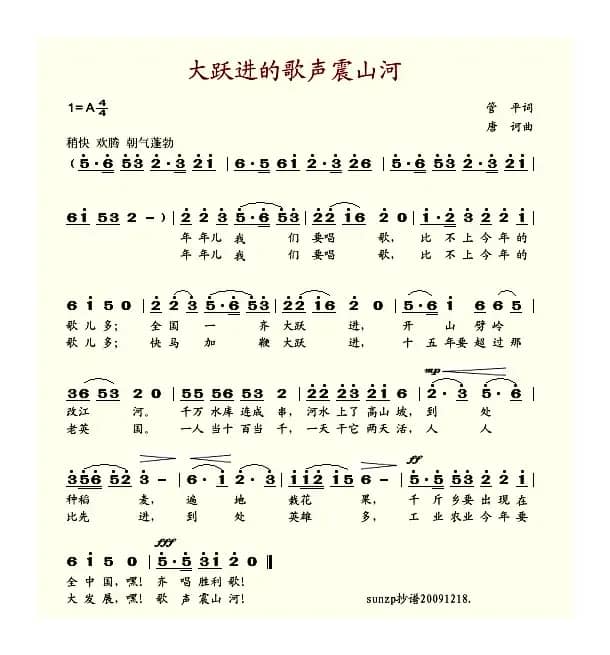 大跃进的歌声震山河
1=A 4/4
管 平词
唐 诃曲
稍快 欢腾 朝气蓬勃
(5·6 53 2·3 21 | 6·5 61 2·3 26 | 5·6 53 2·3 21 |
61 53 2 –) | 2 2 3 5·6 53 | 22 16 2 0 | 1·2 3 2 2 1 |
年 年儿 我 们 要唱 歌, 比 不 上 今 年 的
年 年儿 我 们 要唱 歌, 比 不 上 今 年 的
6 1 5 0 | 2 2 3 5·6 53 | 22 16 2 0 | 5 1 6 6 5 |
歌 儿 多; 全 国 一 齐 大跃 进, 开 山 劈 岭
歌 儿 多; 快 马 加 鞭 大跃 进, 十 五 年要 超 过 那
6 53 2 0 | 55 56 53 2 | 22 23 21 6 | 2·3 5·6 |
mp
改江 河。 千万 水库 连成 串, 河水 上了 高山 坡, 到 处
老英 国。 一人 当十 百当 千, 一天 干它 两天 活, 人 人
356 52 3 – | 6· 1 2· 3 | 1 216 5 – | 5·5 53 2 23 |
ff
种稻 麦, 遍 地 栽花 果, 千 斤 乡要 出 现在
比先 进, 到 处 英雄 多, 工 业 农业 今 年要
6 1 5 0 | 5·5 31 2 0 ‖
fff
全 中 国, 嘿! 齐 唱 胜利 歌!
大 发 展, 嘿! 歌 声 震山 河!
sunzp抄谱20091218.